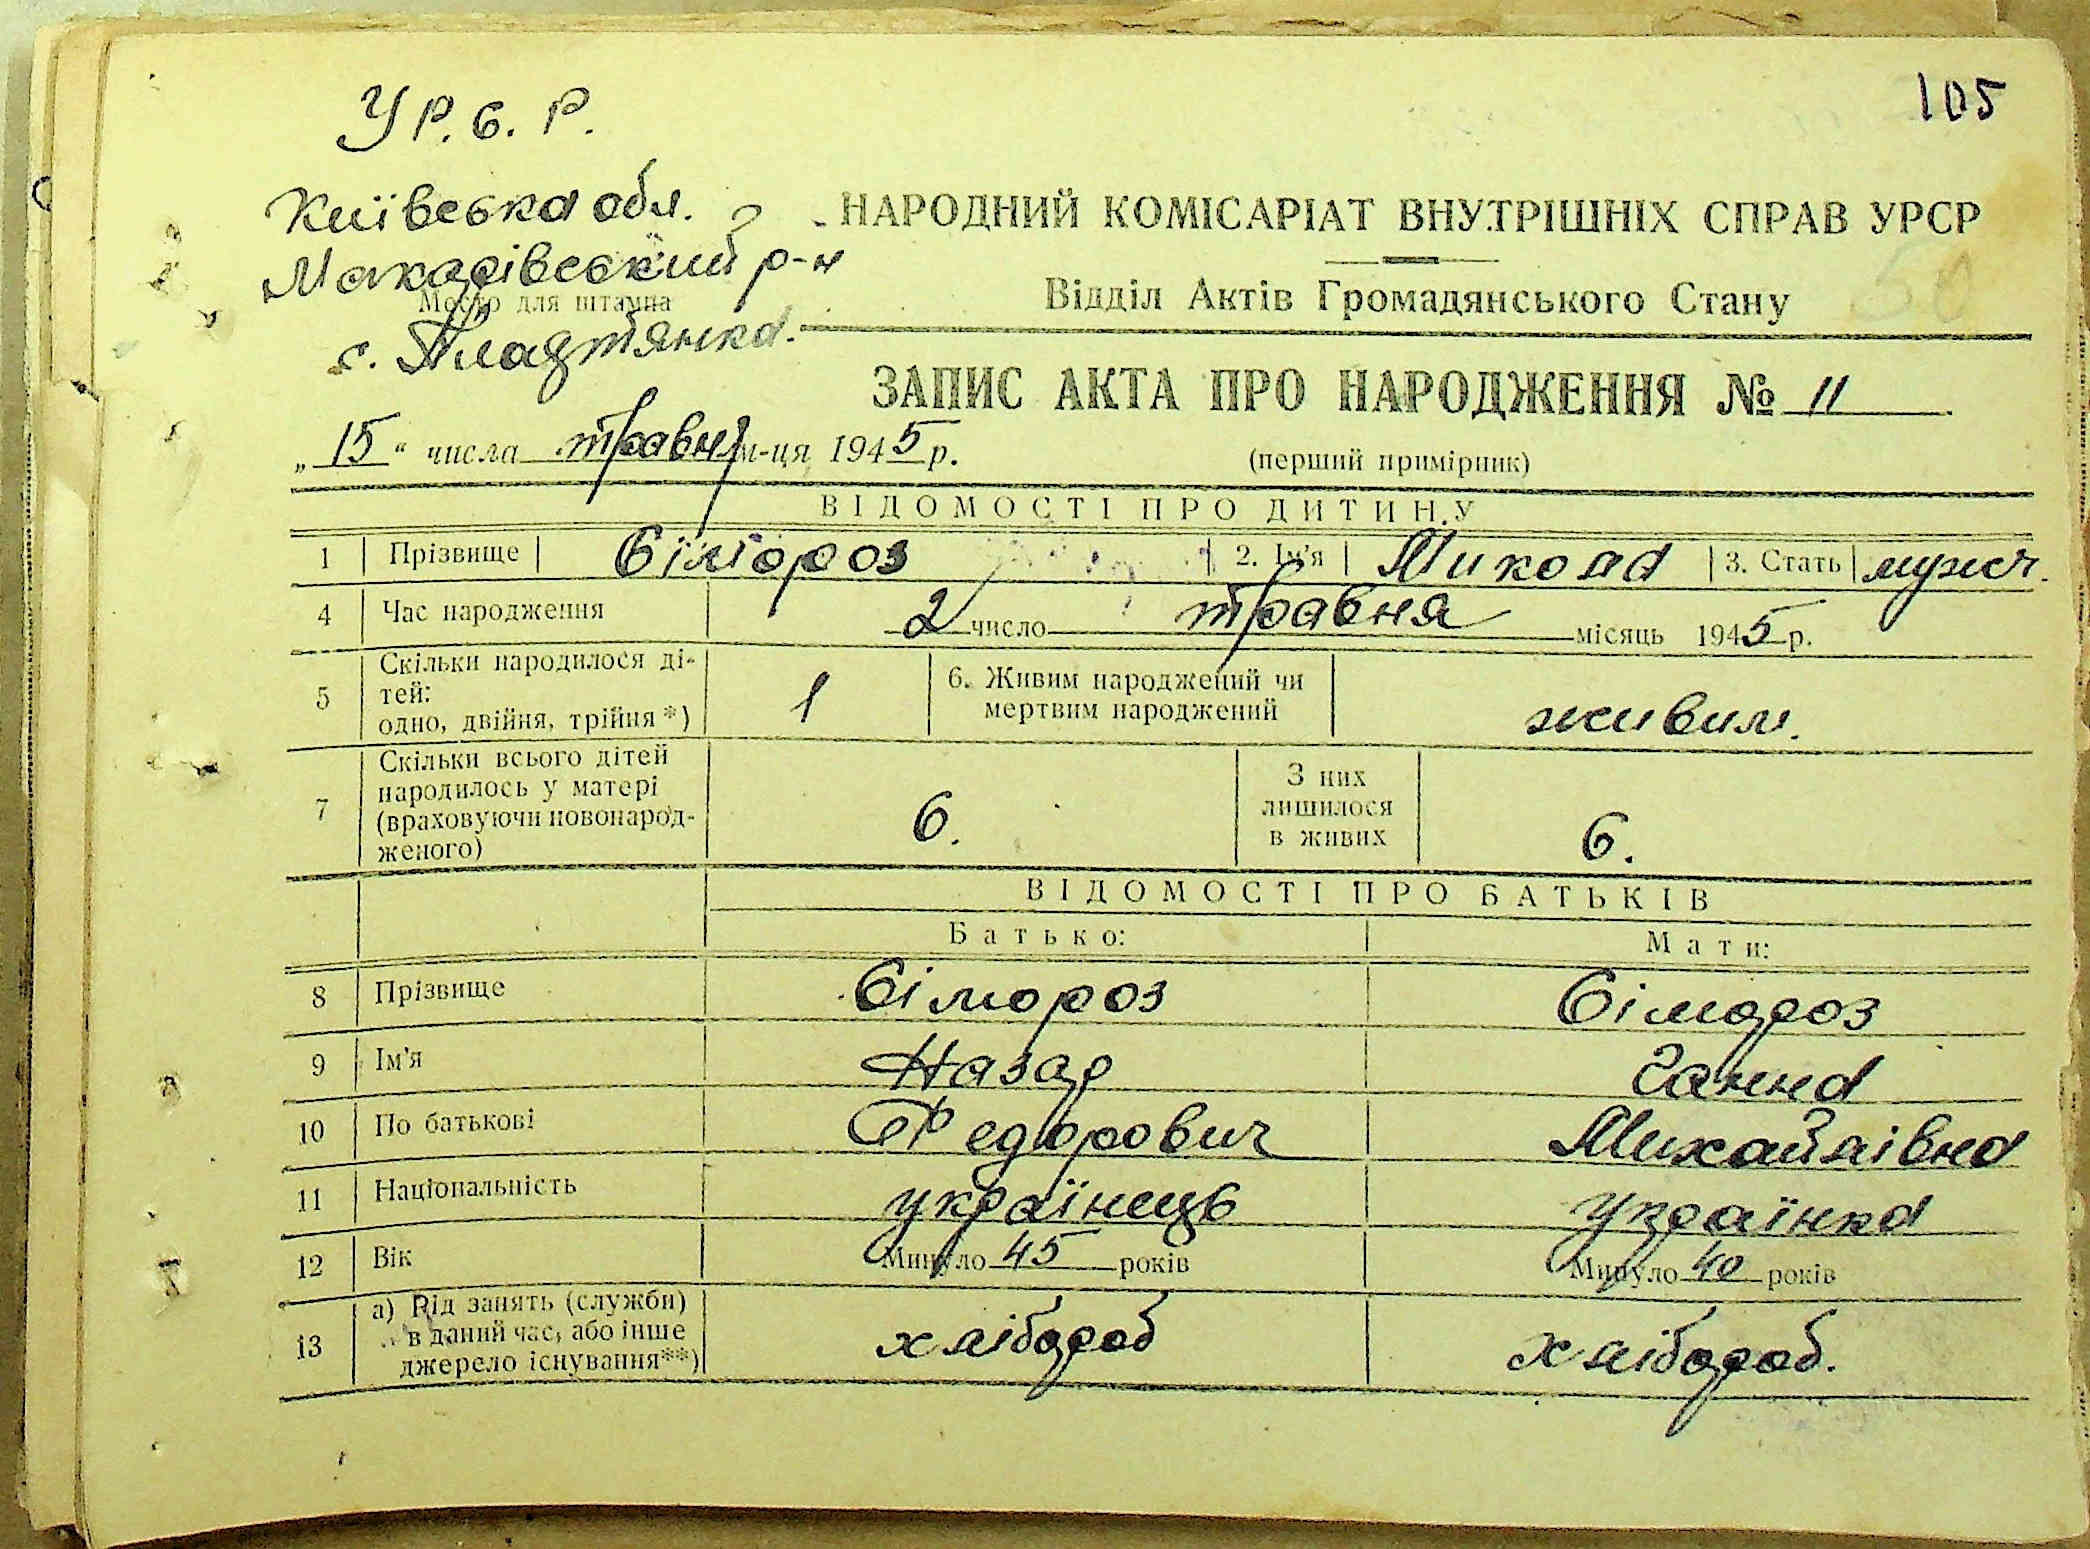 105
УР.С.Р.
Київська обл.
Макарівський р-н
Место для штампа
с. Плахтянка.
НАРОДНИЙ КОМІСАРІАТ ВНУТРІШНІХ СПРАВ УРСР
Відділ Актів Громадянського Стану
ЗАПИС АКТА ПРО НАРОДЖЕННЯ № 11
„15“ числа травня м-ця 1945 р.
(перший примірник)
ВІДОМОСТІ ПРО ДИТИНУ
1 Прізвище Сімороз 2. Ім'я Микола 3. Стать мужч.
4 Час народження 2 число травня місяць 1945 р.
5 Скільки народилося ді-
тей:
одно, двійня, трійня *) 1
6. Живим народжений чи
мертвим народжений живим.
7 Скільки всього дітей
народилось у матері
(враховуючи новонарод-
женого) 6.
З них
лишилося
в живих 6.
ВІДОМОСТІ ПРО БАТЬКІВ
Батько: Мати:
8 Прізвище Сімороз Сімороз
9 Ім'я Назар Ганна
10 По батькові Федорович Михайлівна
11 Національність українець Українка
12 Вік Минуло 45 років Минуло 40 років
13 а) Рід занять (служби)
в даний час, або інше
джерело існування**) хлібороб хлібороб.